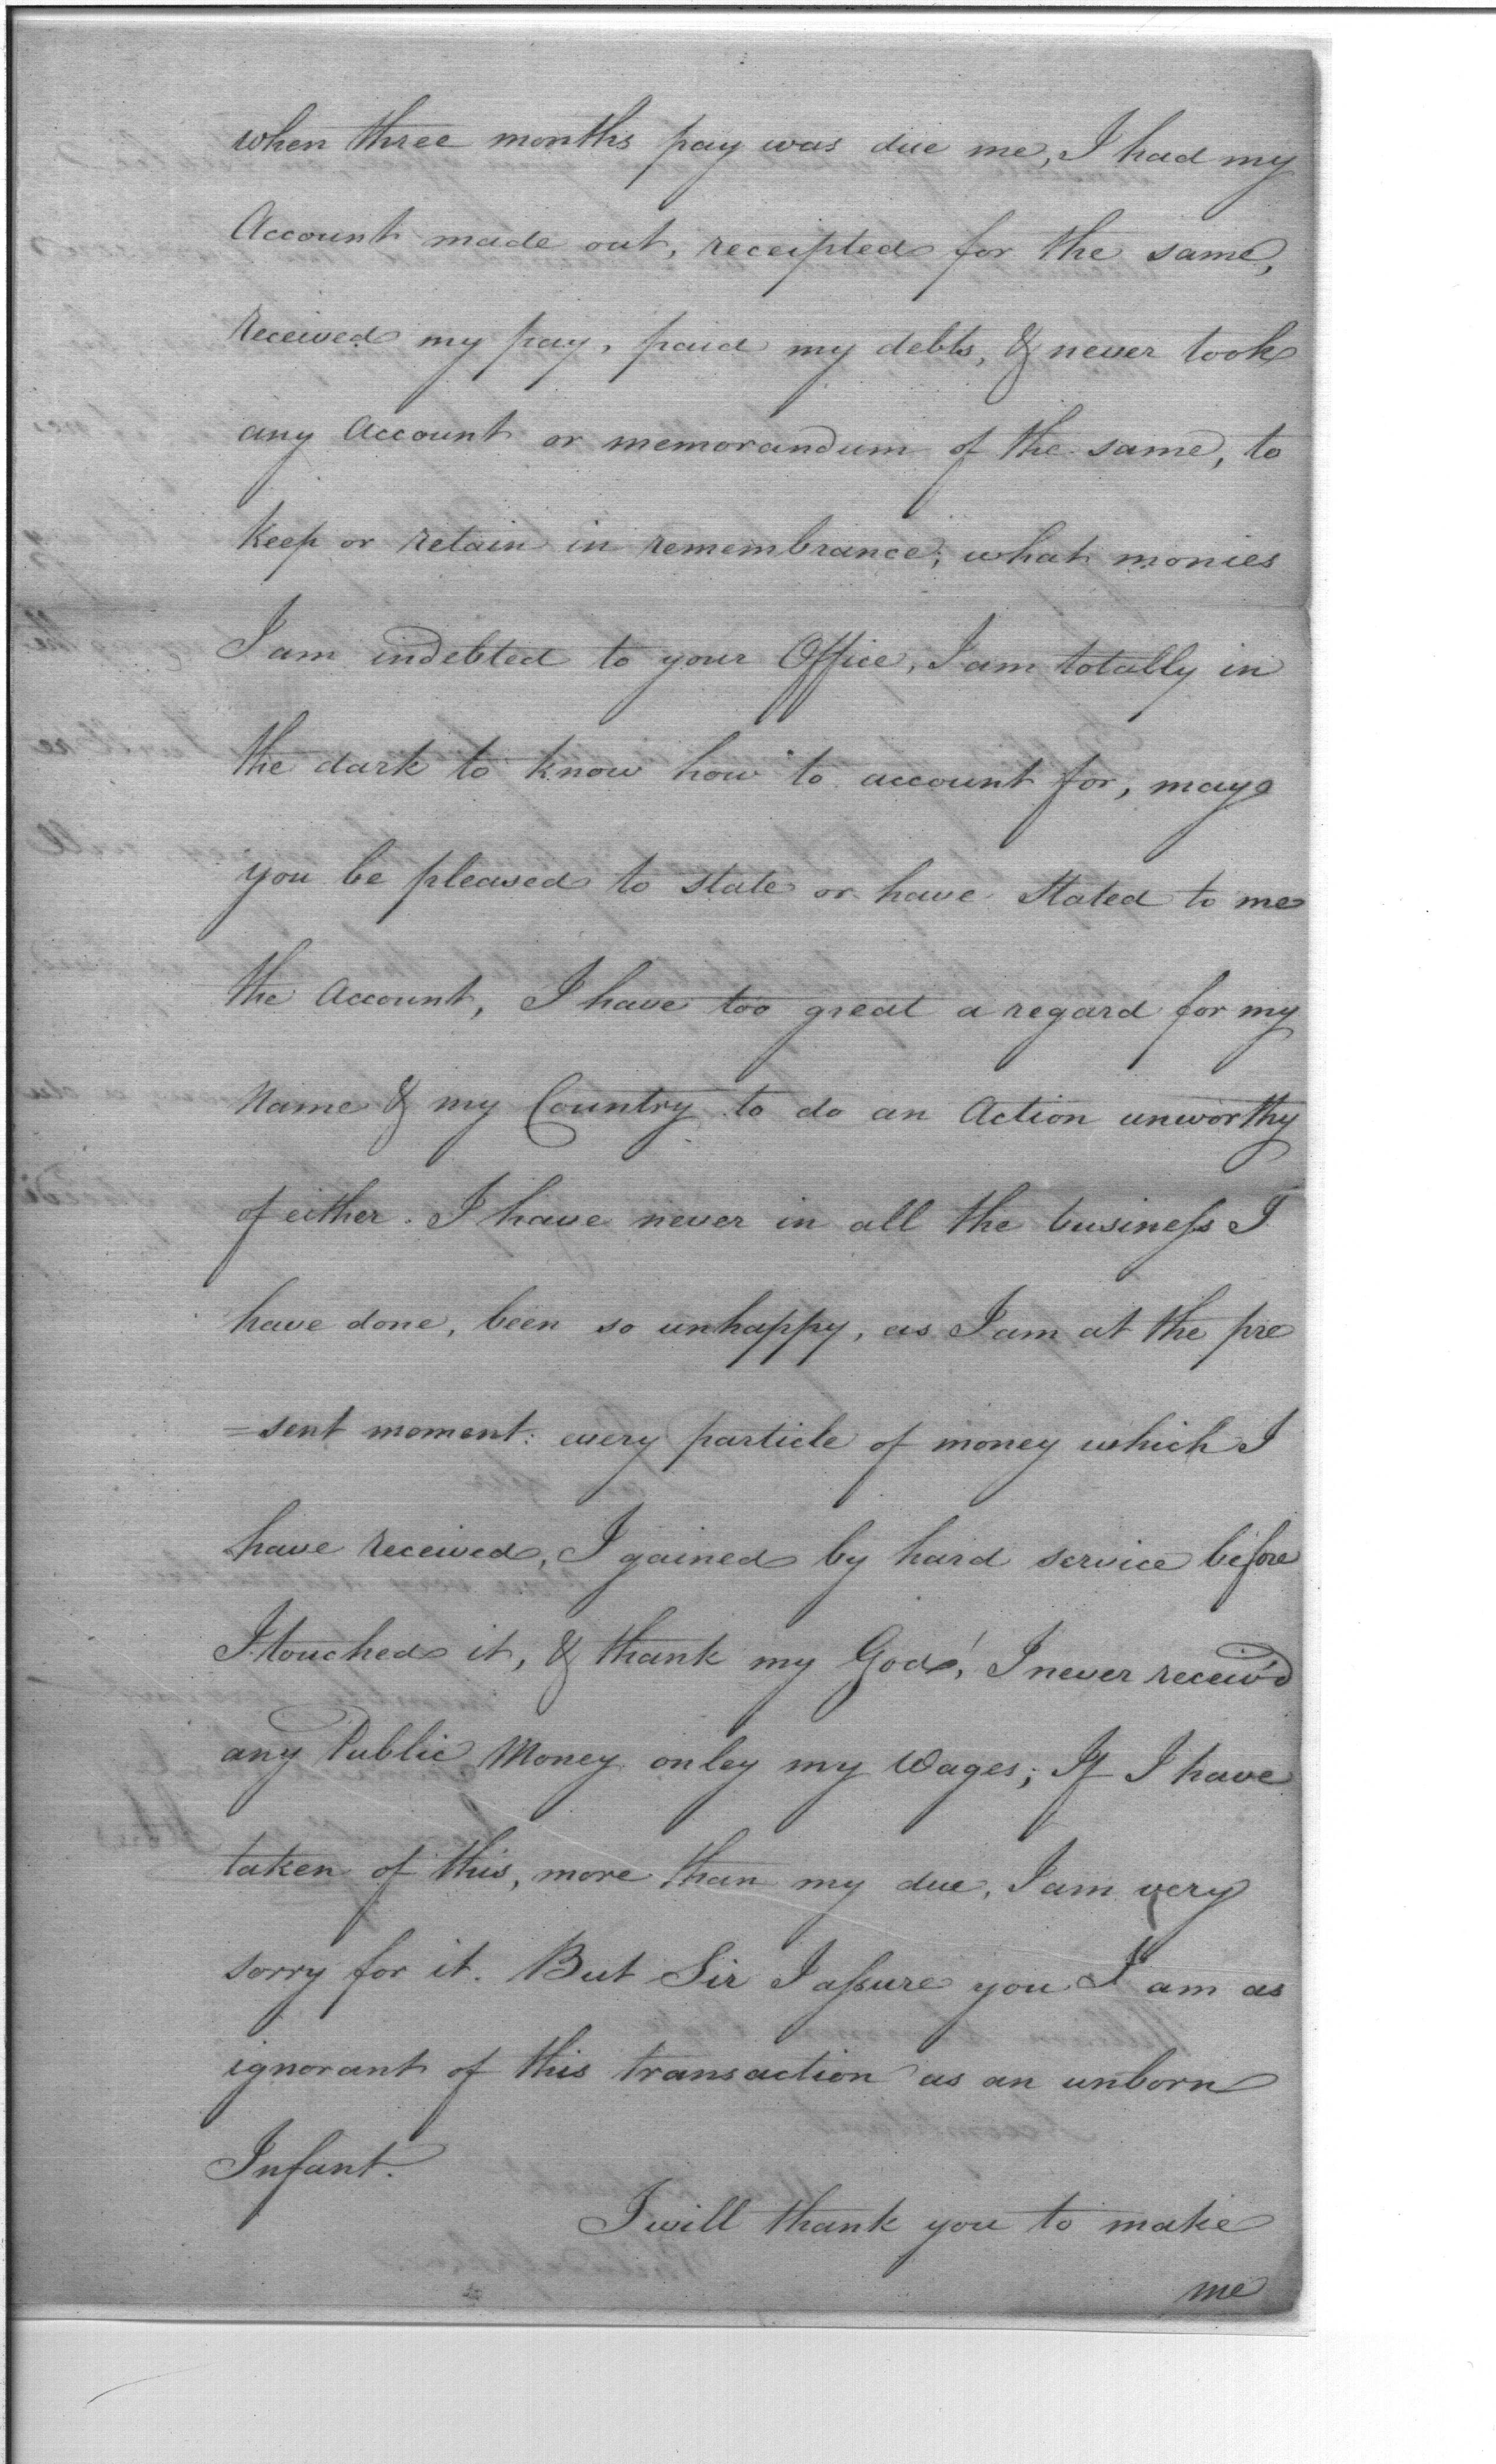 when three months pay was due me, I had my
Account made out, receipted for the same,
received my pay, paid my debts, & never took
any Account or memorandum of the same, to
keep or retain in remembrance; what monies
I am indebted to your Office, I am totally in
the dark to know how to account for, may
you be pleased to state or have stated to me
the Account, I have too great a regard for my
Name & my Country to do an Action unworthy
of either. I have never in all the busineſs I
have done, been so unhappy, as I am at the pre
=sent moment: every particle of money which I
have received, I gained by hard service before
I touched it, & thank my God! I never receiv'd
any Public Money onley my Wages; If I have
taken of this, more than my due, I am very
sorry for it. But Sir I aſsure you I am as
ignorant of this transaction as an unborn
Infant.
I will thank you to make
me